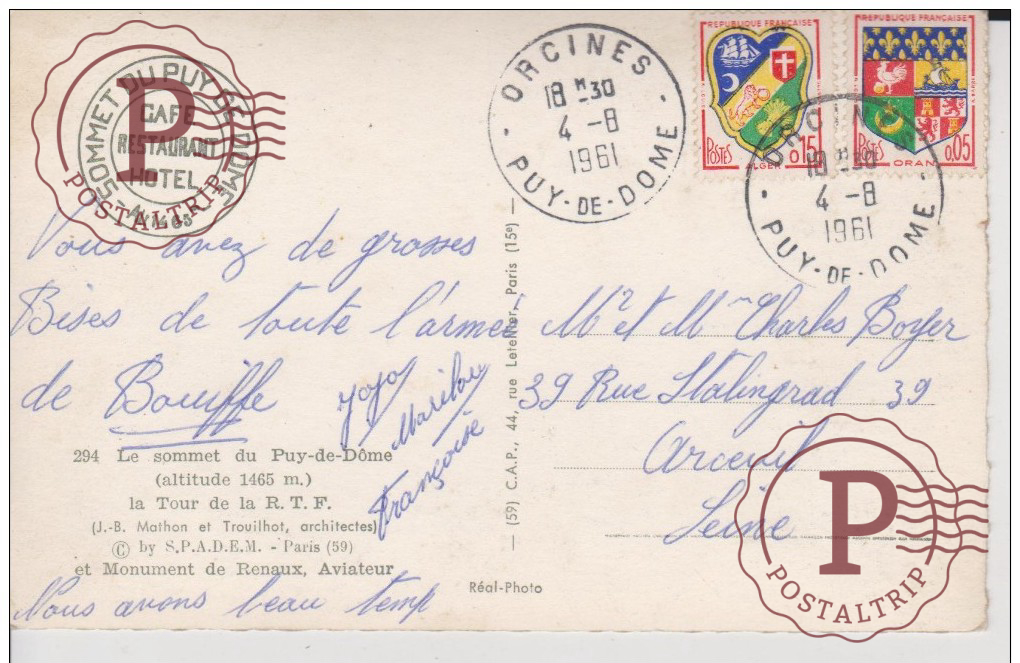 SOMMET DU PUY DE DOME
CAFE
RESTAURANT
HOTEL
POSTALTRIP
ORCINES
18 H 30
4 -8
1961
PUY-DE-DOME
REPUBLIQUE FRANÇAISE
POSTES
ALGER
0,15
REPUBLIQUE FRANÇAISE
POSTES
ORAN
0,05
ORCINES
18 H 30
4 -8
1961
PUY-DE-DOME
Vous avez de grosses
Bises de toute l'armée
de Bouiffe
Jojo
Marilou
Françoise
294 Le sommet du Puy-de-Dôme
(altitude 1465 m.)
la Tour de la R. T. F.
(J.-B. Mathon et Trouilhot, architectes)
© by S.P.A.D.E.M. - Paris (59)
et Monument de Renaux, Aviateur
Nous avons beau temp
Réal-Photo
(59) C.A.P., 44, rue Letellier, Paris (15e)
Mr et Mme Charles Boyer
39 Rue Stalingrad 39
Arceuil
Seine
P
POSTALTRIP